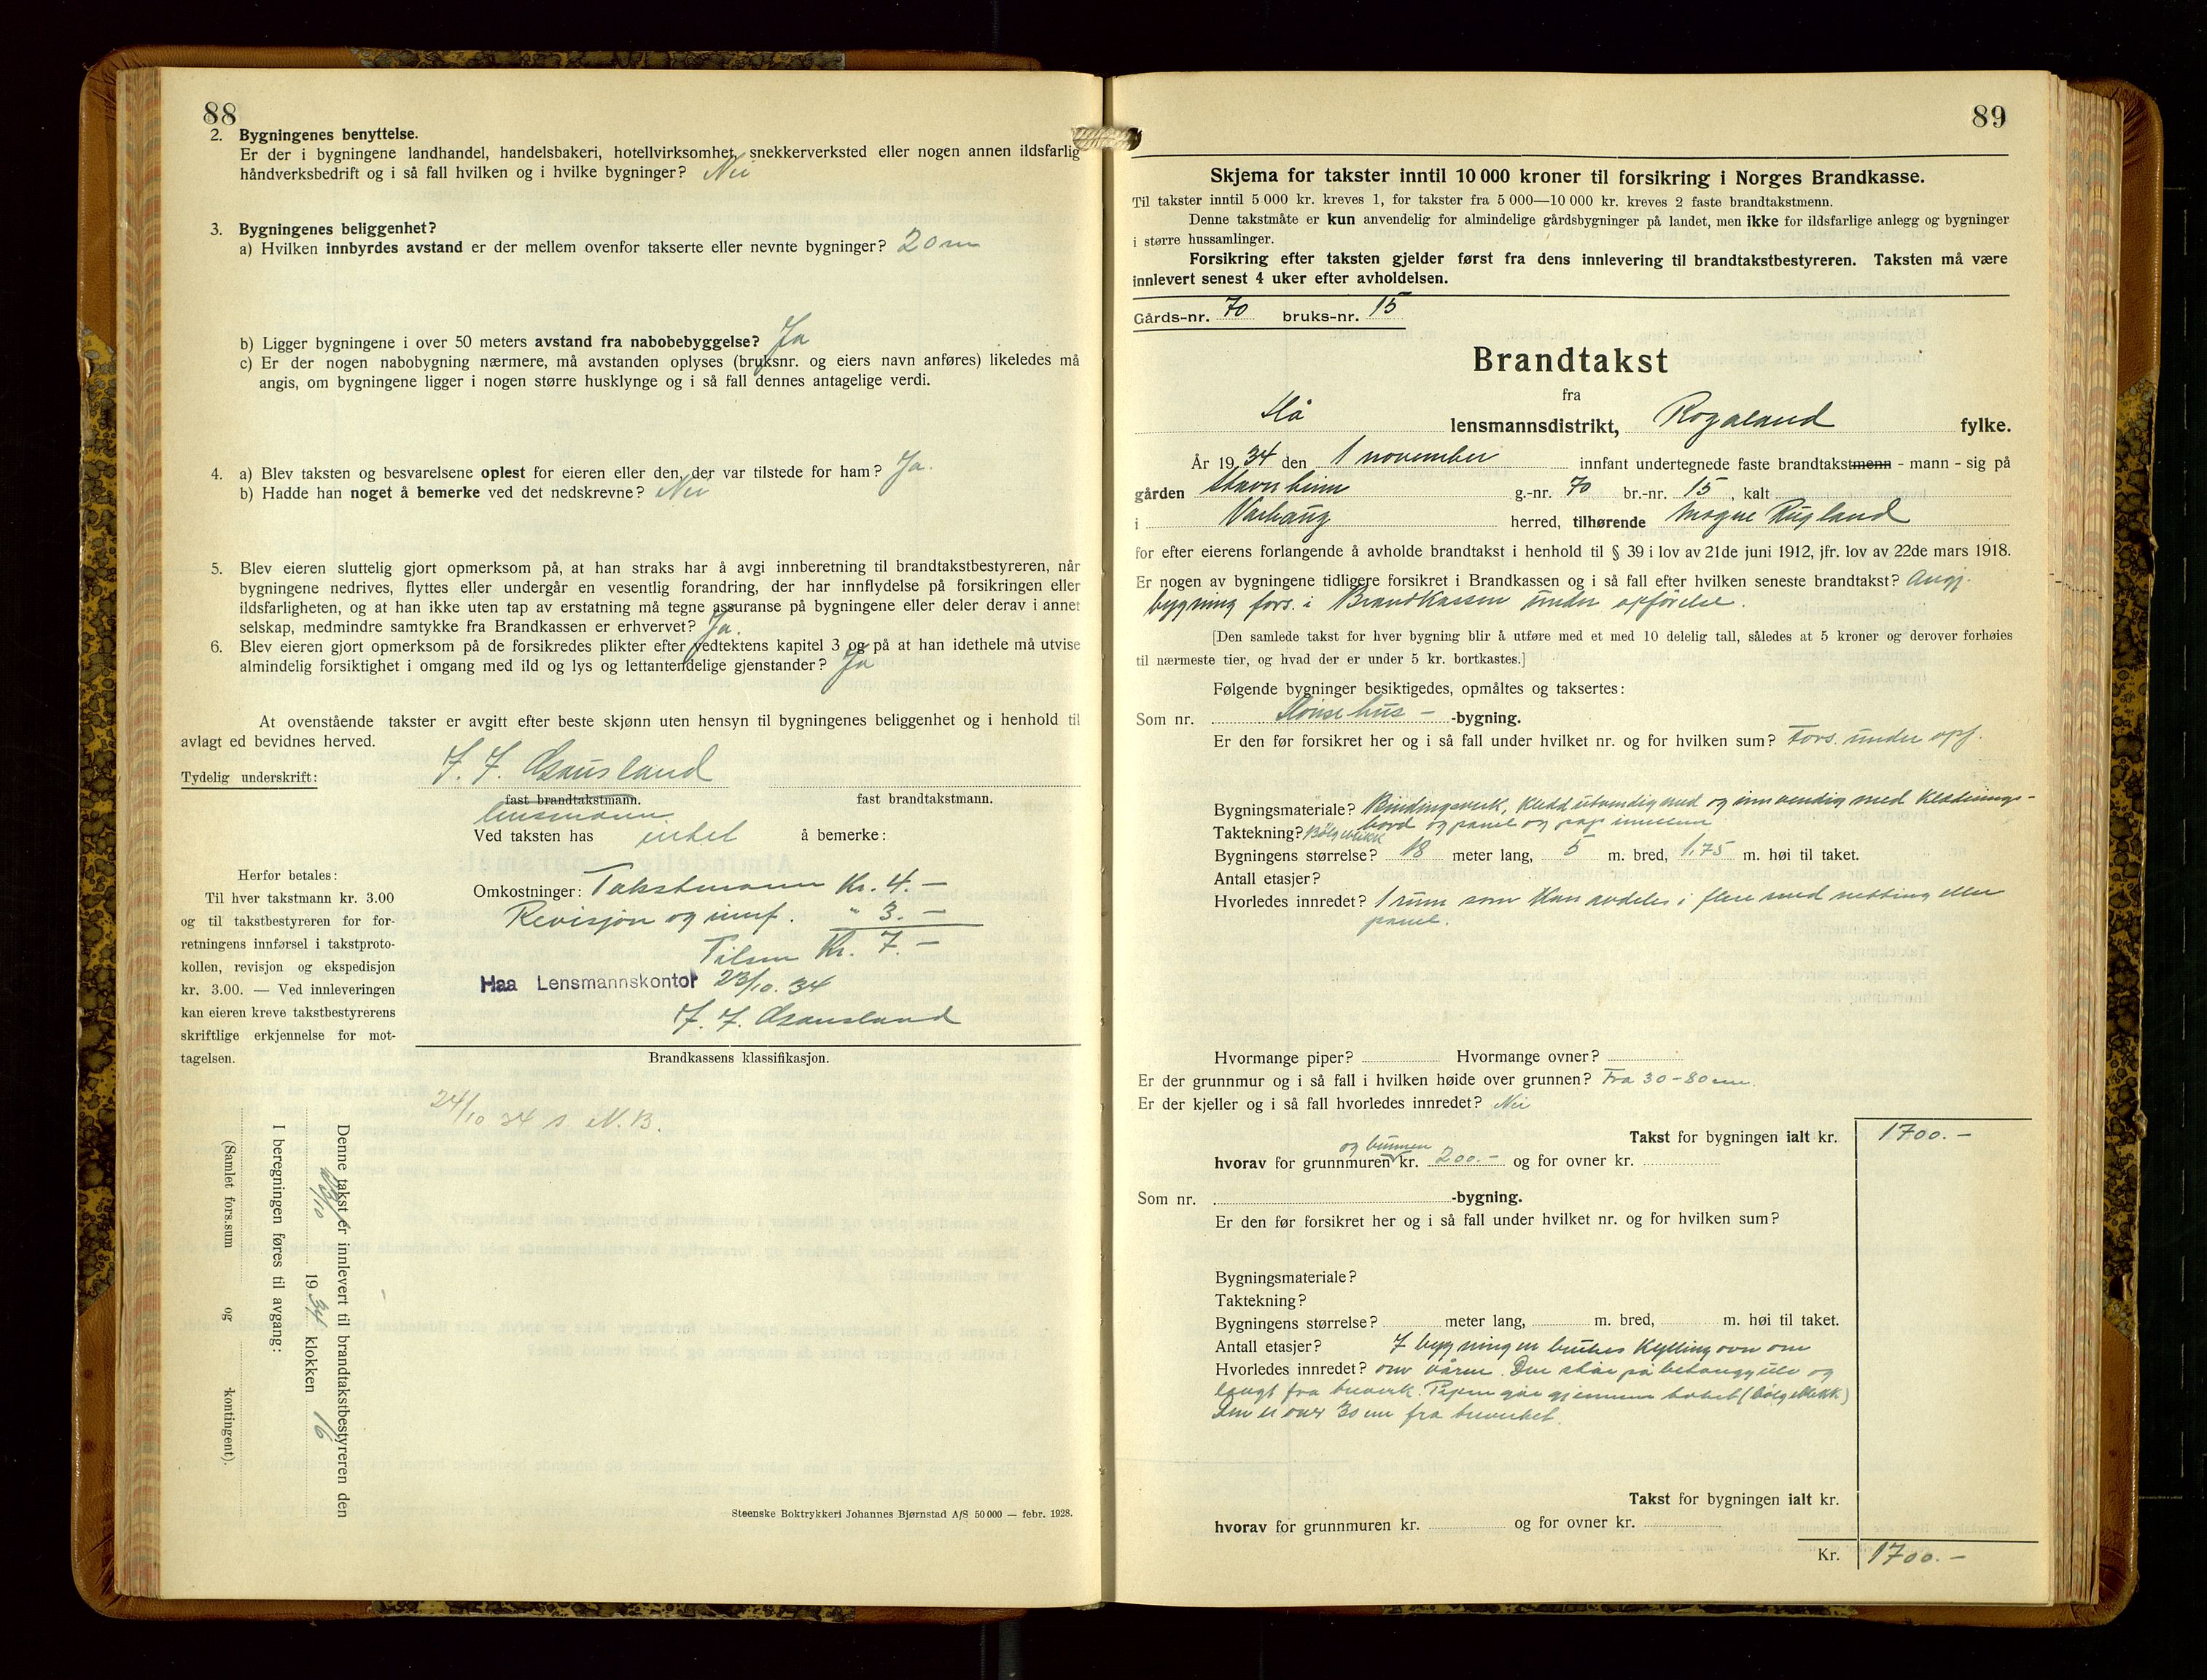 88
2. Bygningenes benyttelse.
Er der i bygningene landhandel, handelsbakeri, hotellvirksomhet, snekkerverksted eller nogen annen ildsfarlig
håndverksbedrift og i så fall hvilken og i hvilke bygninger? Nei
3. Bygningenes beliggenhet?
a) Hvilken innbyrdes avstand er der mellem ovenfor takserte eller nevnte bygninger? 20 m
b) Ligger bygningene i over 50 meters avstand fra nabobebyggelse? Ja
c) Er der nogen nabobygning nærmere, må avstanden oplyses (bruksnr. og eiers navn anføres) likeledes må
angis, om bygningene ligger i nogen større husklynge og i så fall dennes antagelige verdi.
4. a) Blev taksten og besvarelsene oplest for eieren eller den, der var tilstede for ham? Ja.
b) Hadde han noget å bemerke ved det nedskrevne? Nei
5. Blev eieren sluttelig gjort opmerksom på, at han straks har å avgi innberetning til brandtakstbestyreren, når
bygningene nedrives, flyttes eller undergår en vesentlig forandring, der har innflydelse på forsikringen eller
ildsfarligheten, og at han ikke uten tap av erstatning må tegne assuranse på bygningene eller deler derav i annet
selskap, medmindre samtykke fra Brandkassen er erhvervet? Ja.
6. Blev eieren gjort opmerksom på de forsikredes plikter efter vedtektens kapitel 3 og på at han idethele må utvise
almindelig forsiktighet i omgang med ild og lys og lettantendelige gjenstander? Ja
At ovenstående takster er avgitt efter beste skjønn uten hensyn til bygningenes beliggenhet og i henhold til
avlagt ed bevidnes herved.
Tydelig underskrift: J. J. Gausland
fast brandtakstmann. fast brandtakstmann.
lensmann
Ved taksten has intet å bemerke:
Herfor betales:
Til hver takstmann kr. 3.00
og til takstbestyreren for for-
retningens innførsel i takstproto-
kollen, revisjon og ekspedisjon
kr. 3.00. — Ved innleveringen
kan eieren kreve takstbestyrerens
skriftlige erkjennelse for mot-
tagelsen.
Omkostninger: Takstmann Kr. 4. —
Revisjon og innf. " 3. —
Tilsm Kr. 7. —
Haa Lensmannskontor 23/10. 34
J. J. Gausland
Brandkassens klassifikasjon.
24/10 34 s N.B.
Denne takst er innlevert til brandtakstbestyreren den
23/10 1934 klokken 16
I beregningen føres til avgang:
(Samlet fors.sum og kontingent).
Steenske Boktrykkeri Johannes Bjørnstad A/S 50 000 — febr. 1928.
89
Skjema for takster inntil 10 000 kroner til forsikring i Norges Brandkasse.
Til takster inntil 5 000 kr. kreves 1, for takster fra 5 000—10 000 kr. kreves 2 faste brandtakstmenn.
Denne takstmåte er kun anvendelig for almindelige gårdsbygninger på landet, men ikke for ildsfarlige anlegg og bygninger
i større hussamlinger.
Forsikring efter taksten gjelder først fra dens innlevering til brandtakstbestyreren. Taksten må være
innlevert senest 4 uker efter avholdelsen.
Gårds-nr. 70 bruks-nr. 15
Brandtakst
fra
Hå lensmannsdistrikt, Rogaland fylke.
År 1934 den 1 november innfant undertegnede faste brandtakstmenn - mann - sig på
gården Stavnheim g.-nr. 70 br.-nr. 15, kalt
i Varhaug herred, tilhørende Mogne Rugland
for efter eierens forlangende å avholde brandtakst i henhold til § 39 i lov av 21de juni 1912, jfr. lov av 22de mars 1918.
Er nogen av bygningene tidligere forsikret i Brandkassen og i så fall efter hvilken seneste brandtakst? Angj.
bygning fors. i Brandkassen under opførelse.
[Den samlede takst for hver bygning blir å utføre med et med 10 delelig tall, således at 5 kroner og derover forhøies
til nærmeste tier, og hvad der er under 5 kr. bortkastes.]
Følgende bygninger besiktigedes, opmåltes og taksertes:
Som nr. Hønsehus - -bygning.
Er den før forsikret her og i så fall under hvilket nr. og for hvilken sum? Fors. under opf.
Bygningsmateriale? Bindingsverk, kledd utvendig med og innvendig med Klednings-
bord og panel og pap imellem
Taktekning? Bølgeblikk
Bygningens størrelse? 18 meter lang, 5 m. bred, 1,75 m. høi til taket.
Antall etasjer?
Hvorledes innredet? 1 rum som kan avdeles i flere med netting eller
panel.
Hvormange piper? Hvormange ovner?
Er der grunnmur og i så fall i hvilken høide over grunnen? Fra 30-80 cm.
Er der kjeller og i så fall hvorledes innredet? Nei
Takst for bygningen ialt kr. 1700. —
og bunnen
hvorav for grunnmuren kr. 200. - og for ovner kr.
Som nr. -bygning.
Er den før forsikret her og i så fall under hvilket nr. og for hvilken sum?
Bygningsmateriale?
Taktekning?
Bygningens størrelse? meter lang, m. bred, m. høi til taket.
Antall etasjer? I bygningen brukes Kyllingovn om
Hvorledes innredet? våren. Den står på betonggulv og
langt fra treverk. Pipen går gjennem taket (bølgeblikk)
Den er over 30 cm fra treverket.
Takst for bygningen ialt kr.
hvorav for grunnmuren kr. og for ovner kr.
Kr. 1700. —